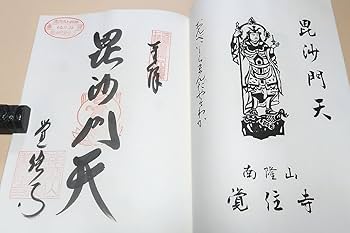 毘沙門天
南隆山
覚住寺
おんべいしらまんだやそわか
奉拝
毘沙門天
覚住寺